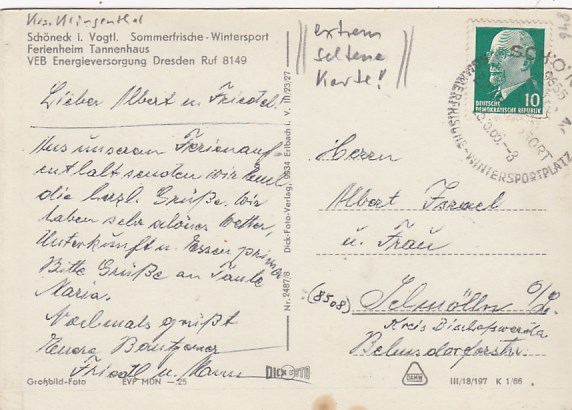 Krs. Klingenthal
Schöneck i. Vogtl. Sommerfrische - Wintersport
Ferienheim Tannenhaus
VEB Energieversorgung Dresden Ruf 8149
extrem
seltene
Karte!
Lieber Albert u. Friedel.
Aus unserem Ferienauf
enthalt senden wir Euch
die herzl. Grüße. Wir
haben sehr schönes Wetter,
Unterkunft u. Essen prima
Bitte Grüße an Tante
Maria.
Nochmals grüßt
Friedl u. Mann
Großbild-Foto EVP MDN -.25
Nr. 2487/8 Dick-Foto-Verlag, 9934 Erlbach i. V. III/23/27
DICK FOTO
DEUTSCHE
DEMOKRATISCHE REPUBLIK
10
SOMMERFRISCHE-WINTERSPORTPLATZ
Herrn
Albert Israel
u. Frau
(8508) Schmölln O/L.
Kreis Bischofswerda
Belmsdorferstr.
III/18/197 K 1/66